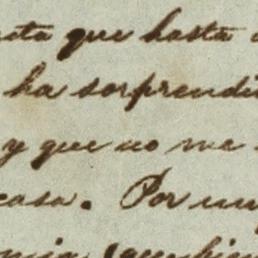 que hasta
ha sorprendi
y que no me
casa. Por